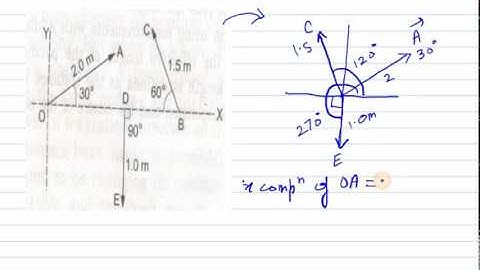 Y
C
A
2.0 m
1.5 m
30°
D
60°
O
B
X
90°
1.0 m
E
C
A
1.5
120°
30°
2
270°
1.0m
E
x compⁿ of OA =